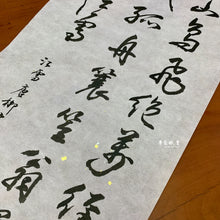 山鳥飛絕萬徑
孤舟蓑笠翁
江雪
江雪唐柳